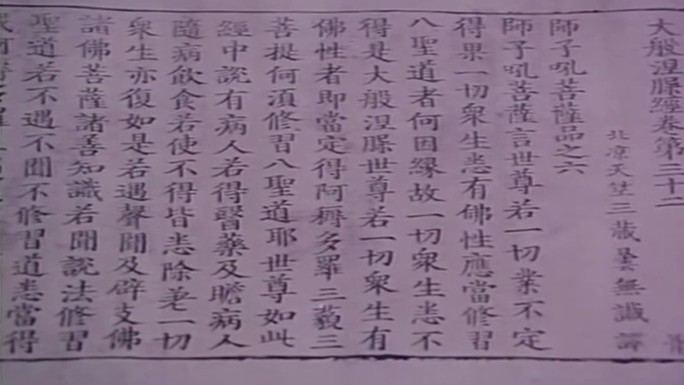 大般涅槃經卷第三十二
北涼天竺三藏曇無讖譯
師子吼菩薩品之六
師子吼菩薩言世尊若一切業不定
得果一切衆生悉有佛性應當修習
八聖道者何因緣故一切衆生悉不
得是大般涅槃世尊若一切衆生有
佛性者即當定得阿耨多羅三藐三
菩提何須修習八聖道耶世尊如此
經中說有病人若得醫藥及瞻病人
隨病飲食若使不得皆悉除差一切
衆生亦復如是若遇聲聞及辟支佛
諸佛菩薩諸善知識若聞說法修習
聖道若不遇不聞不修習道悉當得